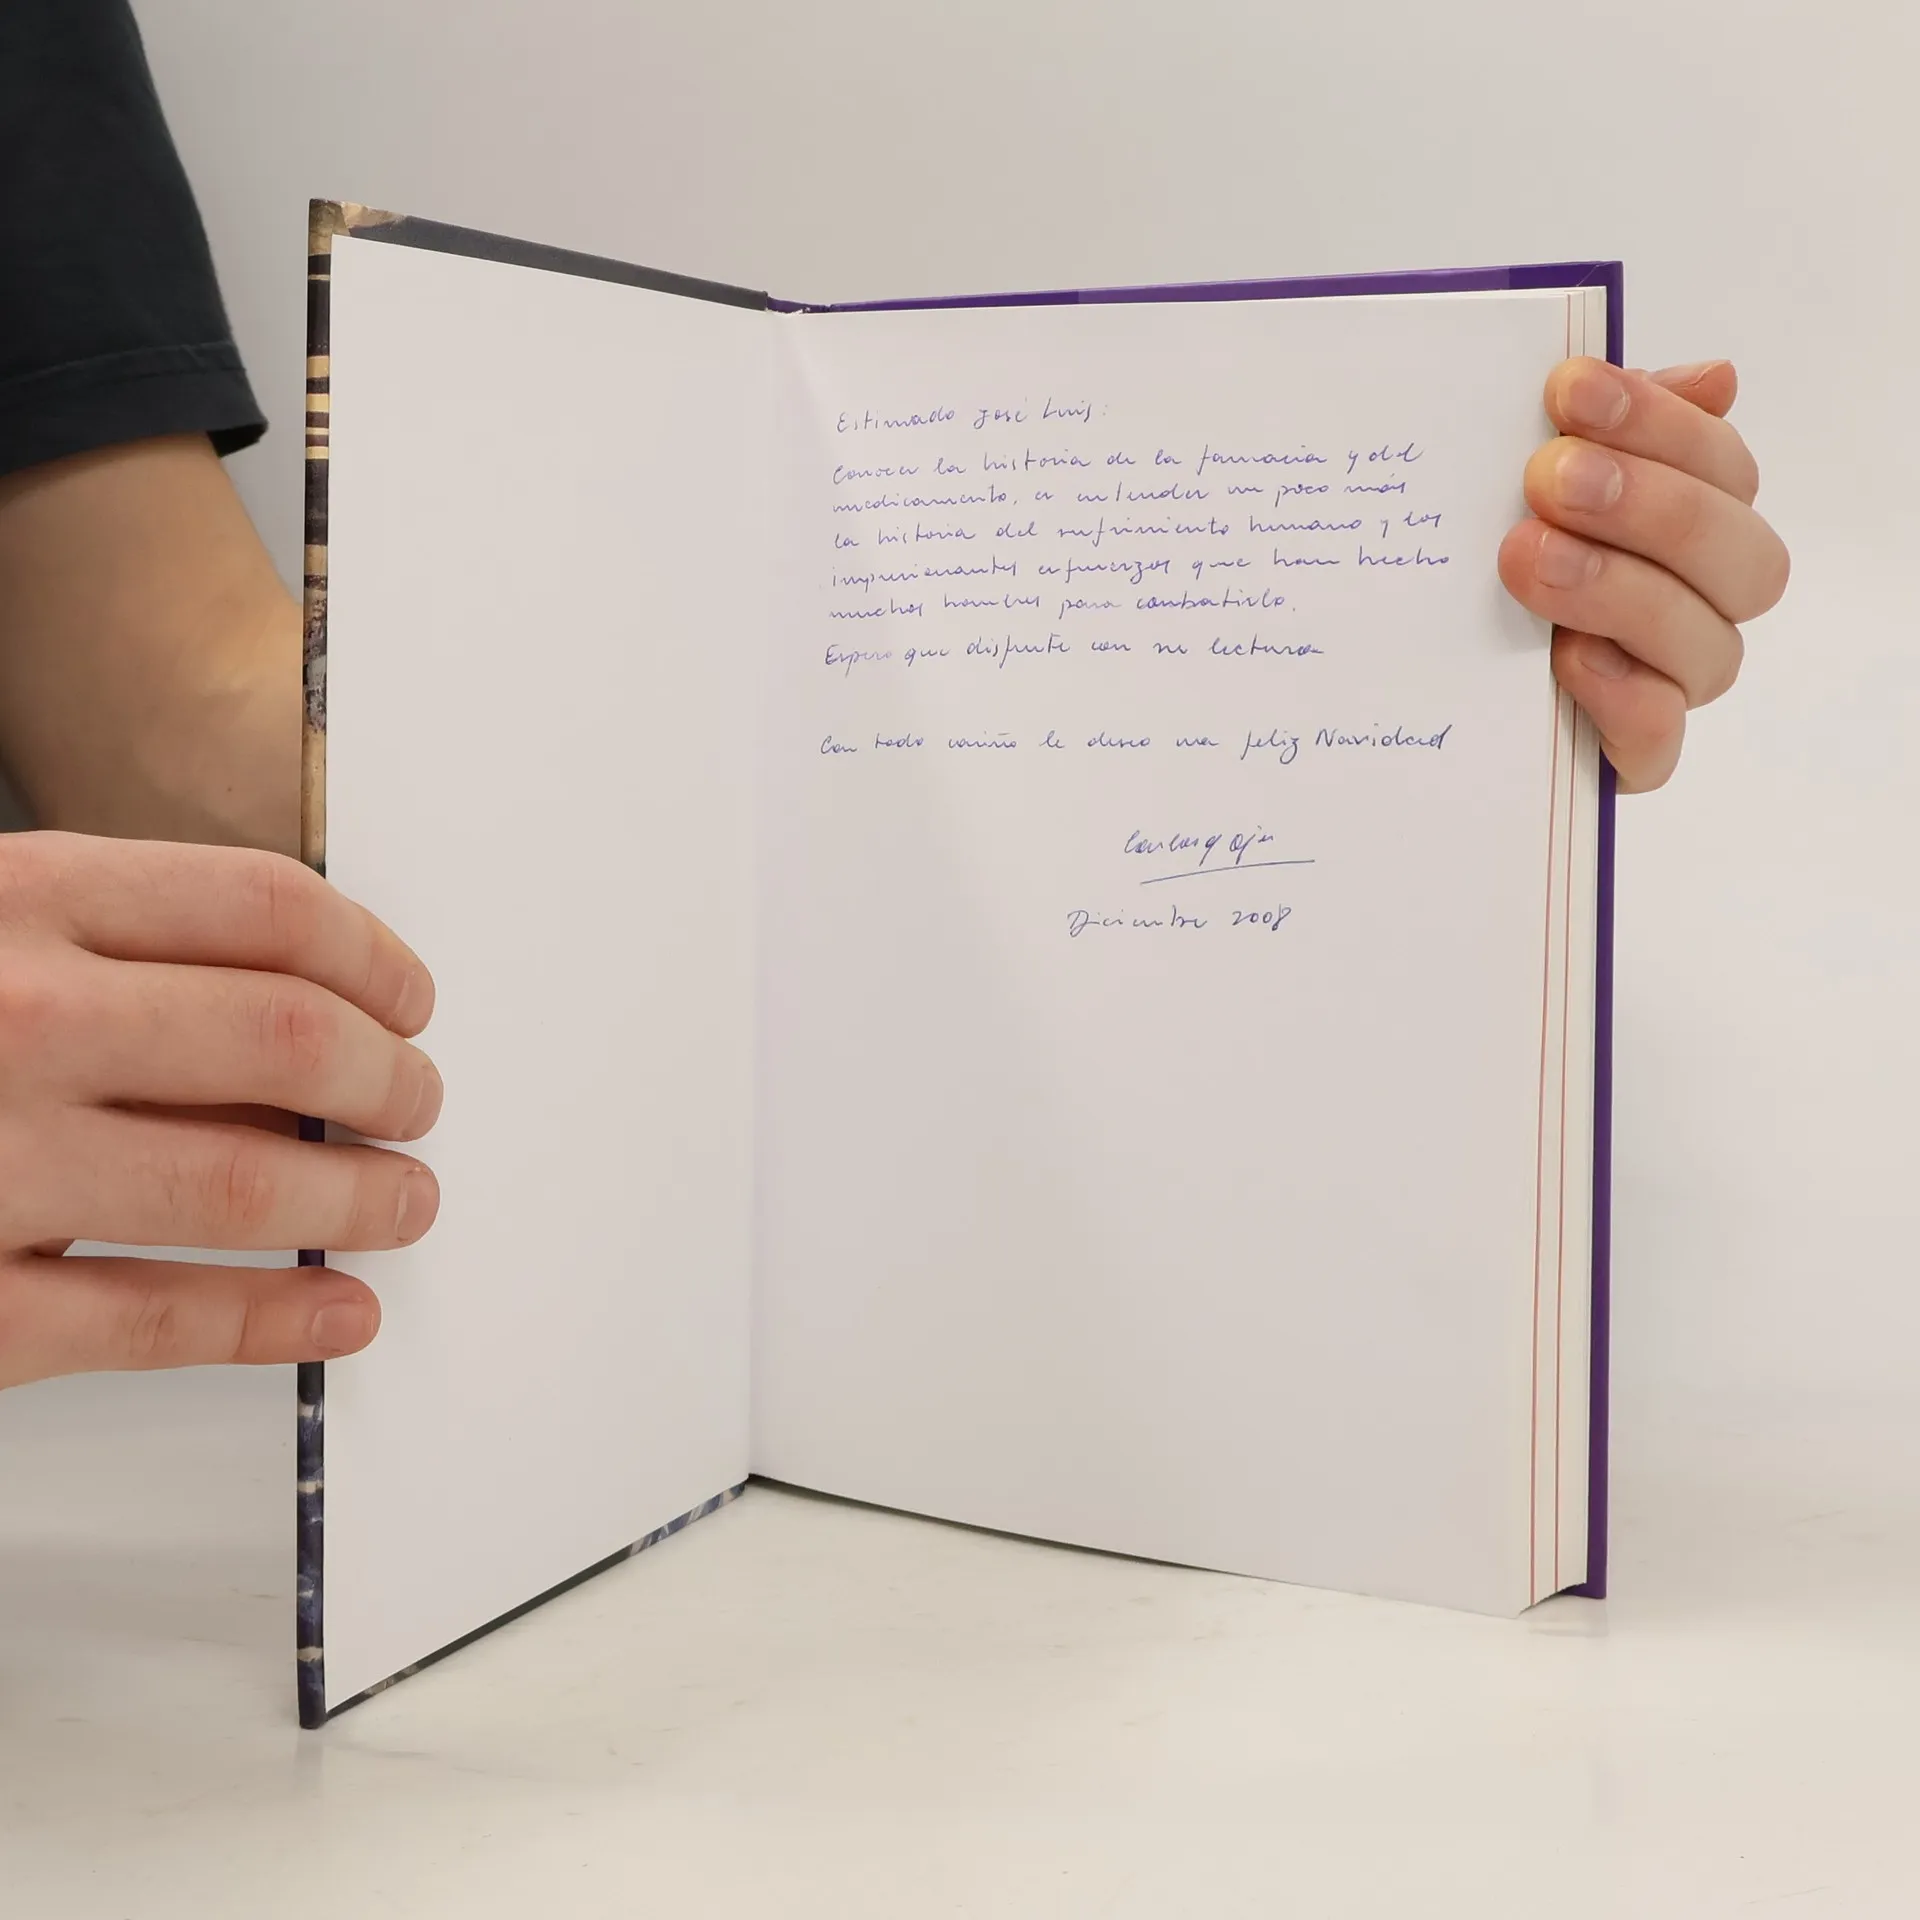 Estimado José Luis:
Conocer la historia de la farmacia y del
medicamento, es entender un poco más
la historia del sufrimiento humano y los
impresionantes esfuerzos que han hecho
muchos hombres para combatirlo.
Espero que disfrute con su lectura
Con todo cariño le deseo una feliz Navidad
Diciembre 2008